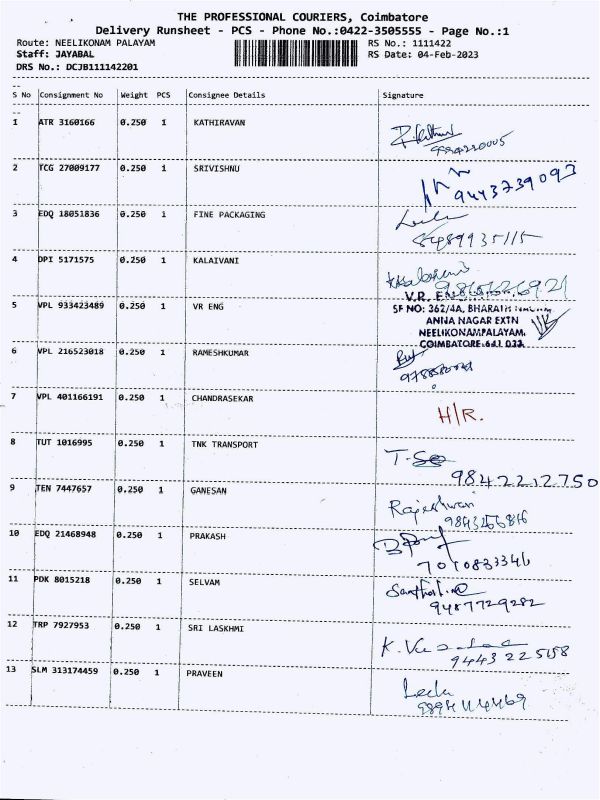 THE PROFESSIONAL COURIERS, Coimbatore
Delivery Runsheet - PCS - Phone No.:0422-3505555 - Page No.:1
Route: NEELIKONAM PALAYAM RS No.: 1111422
Staff: JAYABAL RS Date: 04-Feb-2023
DRS No.: DCJB111142201
S No Consignment No Weight PCS Consignee Details Signature
1 ATR 3160166 0.250 1 KATHIRAVAN
2 TCG 27009177 0.250 1 SRIVISHNU
9443739093
3 EDQ 18051836 0.250 1 FINE PACKAGING
Leela
8489935115
4 DPI 5171575 0.250 1 KALAIVANI
V.R.
5 VPL 933423489 0.250 1 VR ENG
SF NO: 362/4A, BHARATHI
ANNA NAGAR EXTN
NEELIKONAMPALAYAM,
COIMBATORE-641 033.
6 VPL 216523018 0.250 1 RAMESHKUMAR
7 VPL 401166191 0.250 1 CHANDRASEKAR
H/R.
8 TUT 1016995 0.250 1 TNK TRANSPORT
9842212750
9 TEN 7447657 0.250 1 GANESAN
Rajeshwari
10 EDQ 21468948 0.250 1 PRAKASH
7010833346
11 PDK 8015218 0.250 1 SELVAM
9487729282
12 TRP 7927953 0.250 1 SRI LASKHMI
9443225158
13 SLM 313174459 0.250 1 PRAVEEN
Leela